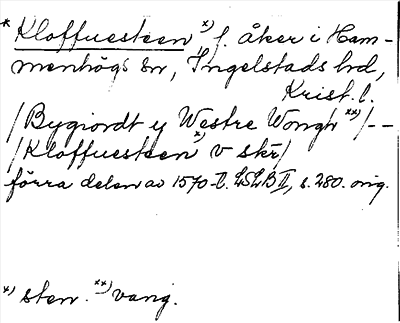 * Kloffuesteen x) f. åker i Ham-
menhögs sn, Ingelstads hd,
Krist. l.
/Bygiordt y Westre Wongh xx)/--
/Kloffuesteen x) v skr/
förra delen av 1570-t. LSLB II, s. 280. orig.
x) sten. xx) vang.